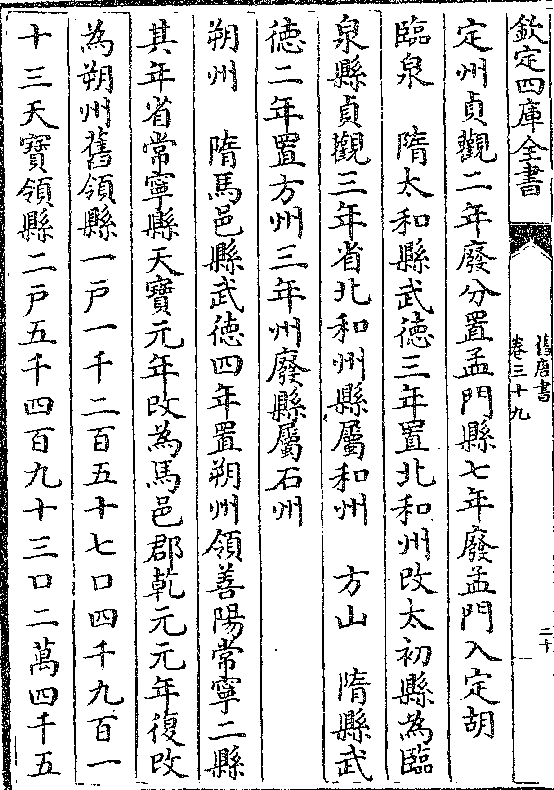 欽定四庫全書
舊唐書
卷三十九
二十
定州貞觀二年廢分置孟門縣七年廢孟門入定胡
臨泉　隋太和縣武德三年置北和州改太初縣為臨
泉縣貞觀三年省北和州縣屬和州　方山　隋縣武
德二年置方州三年州廢縣屬石州
朔州　隋馬邑縣武德四年置朔州領善陽常寧二縣
其年省常寧縣天寶元年改為馬邑郡乾元元年復改
為朔州舊領縣一戸一千二百五十七口四千九百一
十三天寶領縣二戸五千四百九十三口二萬四千五